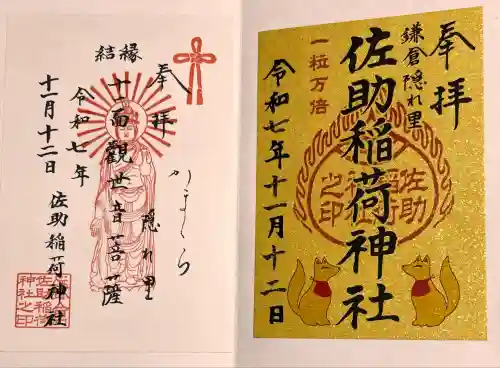 奉拝
鎌倉隠れ里
佐助稲荷神社
一粒万倍
令和七年十一月十二日
佐助
稲荷
神社
之印
奉拝
かまくら
隠れ里
結縁
十一面觀世音菩薩
令和七年
十一月十二日
佐助稲荷神社
佐助稲荷
神社之印